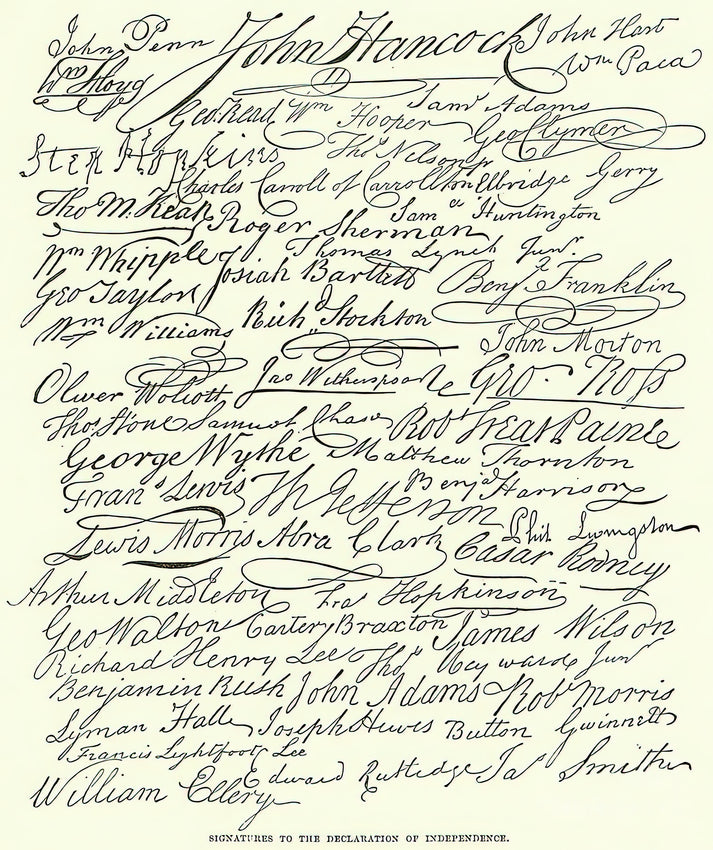 John Penn John Hancock John Hart
Wm Floyd Wm Paca
Geo. Read Wm Hooper Saml Adams
Geo Clymer
Step Hopkins Thos Nelson jr
Charles Carroll of Carrollton Elbridge Gerry
Tho M. Kean Roger Sherman Saml Huntington
Wm Whipple Josiah Bartlett Thomas Lynch Junr.
Geo Taylor Benja Franklin
Wm Williams Richd Stockton
John Morton
Oliver Wolcott Jno Witherspoon Geo. Ross
Thos. Stone Samuel Chase Robt Treat Paine
George Wythe Matthew Thornton
Frans Lewis Th Jefferson Benja Harrison
Lewis Morris Abra Clark Phil. Livingston
Cæsar Rodney
Arthur Middleton Fras Hopkinson
Geo Walton Carter Braxton James Wilson
Richard Henry Lee Thos Heyward Junr
Benjamin Rush John Adams Robt Morris
Lyman Hall Joseph Hewes Button Gwinnett
Francis Lightfoot Lee
William Ellery Edward Rutledge Jas Smith
SIGNATURES TO THE DECLARATION OF INDEPENDENCE.